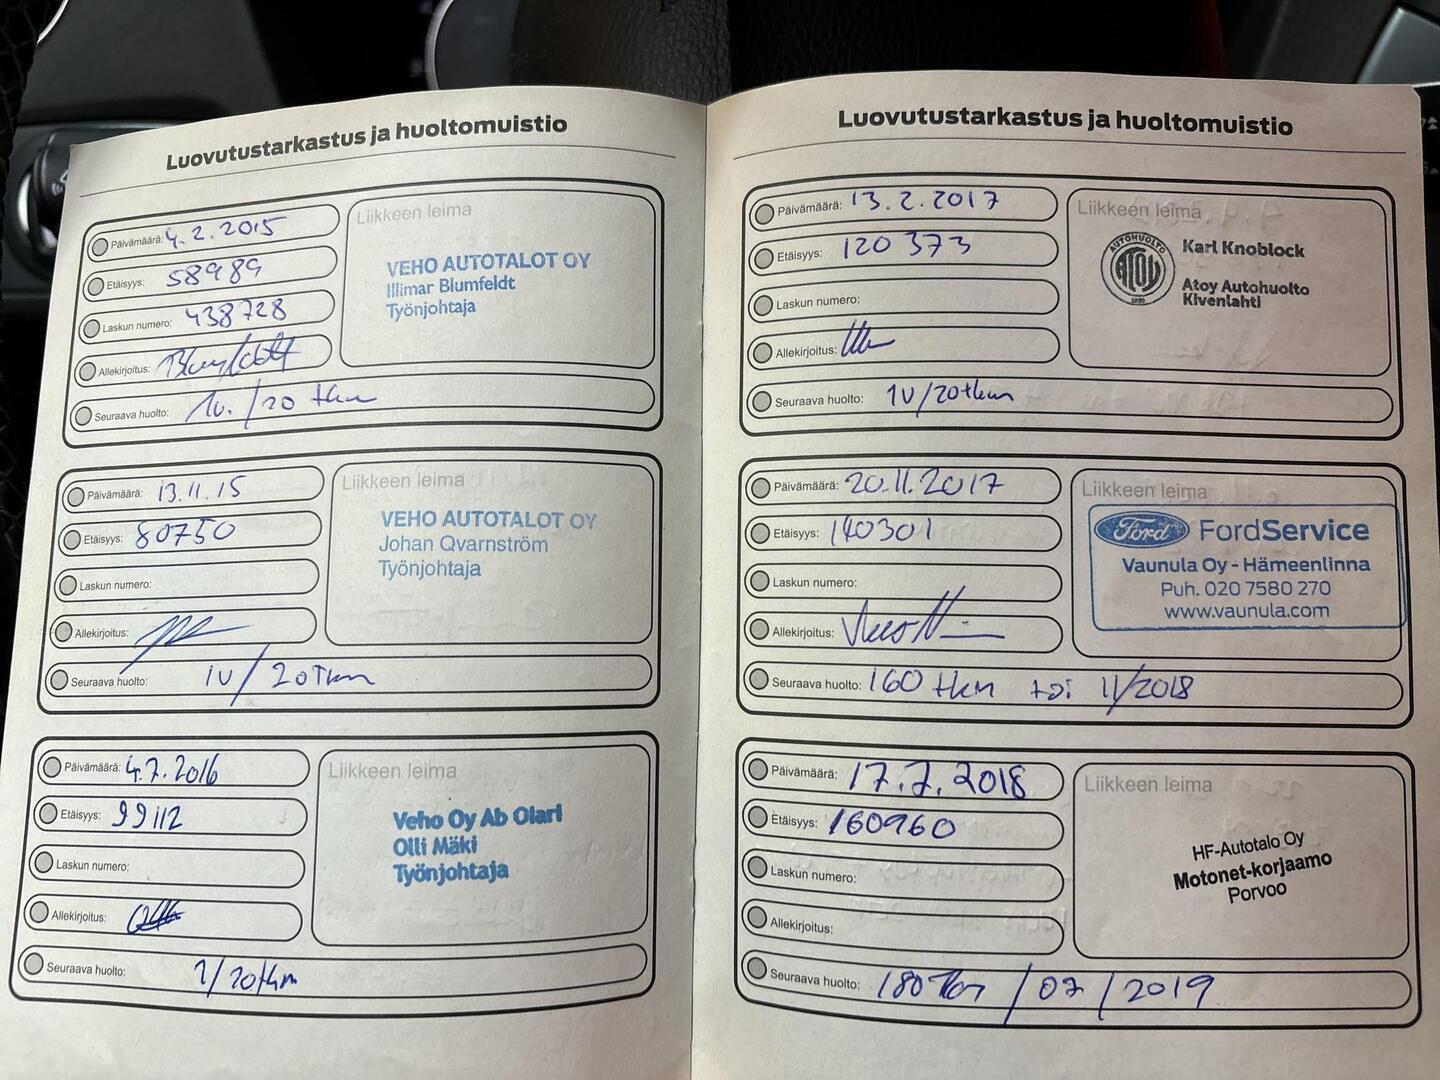 Luovutustarkastus ja huoltomuistio
Päivämäärä: 4.2.2015
Etäisyys: 58989
Laskun numero: 438728
Allekirjoitus:
Seuraava huolto: 1v. / 20 tkm
Liikkeen leima
VEHO AUTOTALOT OY
Illimar Blumfeldt
Työnjohtaja
Päivämäärä: 13.11.15
Etäisyys: 80750
Laskun numero:
Allekirjoitus:
Seuraava huolto: 1V / 20Tkm
Liikkeen leima
VEHO AUTOTALOT OY
Johan Qvarnström
Työnjohtaja
Päivämäärä: 4.7.2016
Etäisyys: 99112
Laskun numero:
Allekirjoitus:
Seuraava huolto: 1/20tkm
Liikkeen leima
Veho Oy Ab Olari
Olli Mäki
Työnjohtaja
Luovutustarkastus ja huoltomuistio
Päivämäärä: 13.2.2017
Etäisyys: 120 373
Laskun numero:
Allekirjoitus:
Seuraava huolto: 1V/20tkm
Liikkeen leima
AUTOHUOLTO
ATOY
Karl Knoblock
Atoy Autohuolto
Kivenlahti
Päivämäärä: 20.11.2017
Etäisyys: 140301
Laskun numero:
Allekirjoitus:
Seuraava huolto: 160 tkm tai 11/2018
Liikkeen leima
Ford FordService
Vaunula Oy - Hämeenlinna
Puh. 020 7580 270
www.vaunula.com
Päivämäärä: 17.7.2018
Etäisyys: 160960
Laskun numero:
Allekirjoitus:
Seuraava huolto: 180 Tkm / 07 / 2019
Liikkeen leima
HF-Autotalo Oy
Motonet-korjaamo
Porvoo